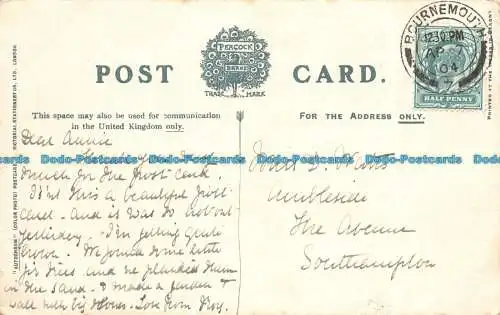 POST CARD.
PEACOCK
BRAND
TRADE MARK
BOURNEMOUTH
12.30 PM
AP 7
04
HALF PENNY
This space may also be used for communication
in the United Kingdom only.
FOR THE ADDRESS ONLY.
"AUTOCHROM" (COLOR PHOTO) POSTCARD PICTORIAL STATIONERY CO., LTD., LONDON.
PRINTED AT THE
Dear Annie
Dodo-Postcards Dodo-Postcards Dodo-Postcards Dodo-Postcards Dodo-Postcards
much for the post card.
Isn't this a beautiful post
card - and it was so hot out
yesterday. I'm getting quite
brown. We found some little
fir trees and we planted them
in the sand. I made a garden &
wall with big stones. Love from
Watts
Ambleside
The Avenue
Southampton